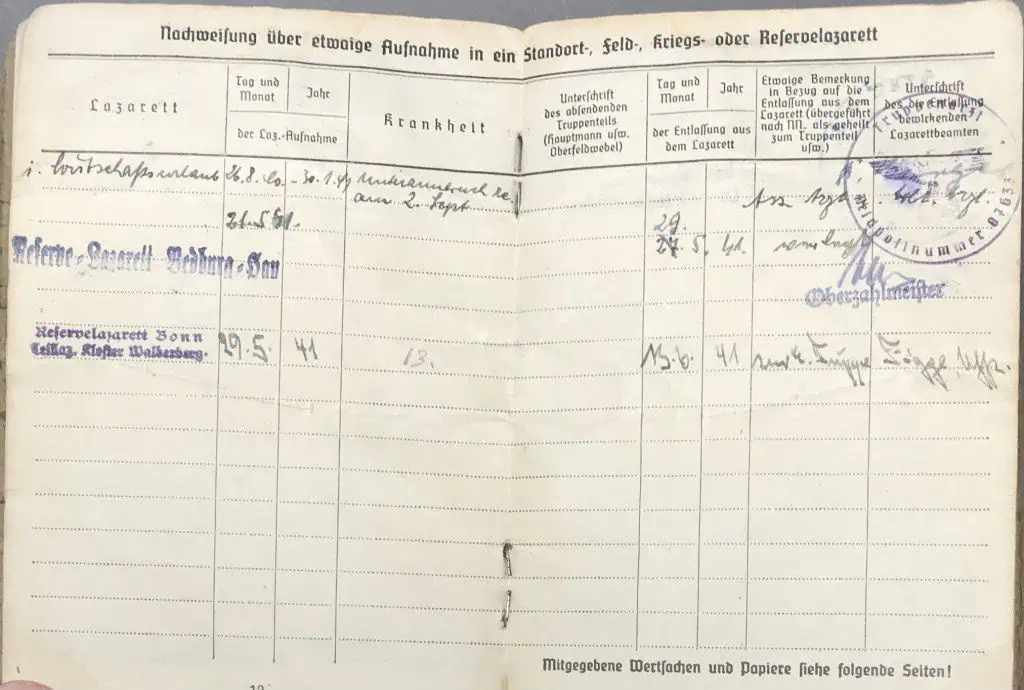 Nachweisung über etwaige Aufnahme in ein Standort-, Feld-, Kriegs- oder Reservelazarett
Lazarett
Tag und
Monat
Jahr
der Laz.-Aufnahme
Krankheit
Unterschrift
des absendenden
Truppenteils
(Hauptmann usw.
Oberfeldwebel)
Tag und
Monat
Jahr
der Entlassung aus
dem Lazarett
Etwaige Bemerkung
in Bezug auf die
Entlassung aus dem
Lazarett (übergeführt
nach NN. als geheilt
zum Truppenteil
usw.)
Unterschrift
des die Entlassung
bewirkenden
Lazarettbeamten
26.8.40. - 30.1.41
am 2. Sept
Feldpostnummer
21.5.41.
29.
27. 5. 41.
Reserve-Lazarett Bedburg-Hau
Oberzahlmeister
Reservelazarett Bonn
Teillaz. Kloster Walberberg.
29.5. 41
13.
13.6. 41
Truppe
Uffz.
Mitgegebene Wertsachen und Papiere siehe folgende Seiten!